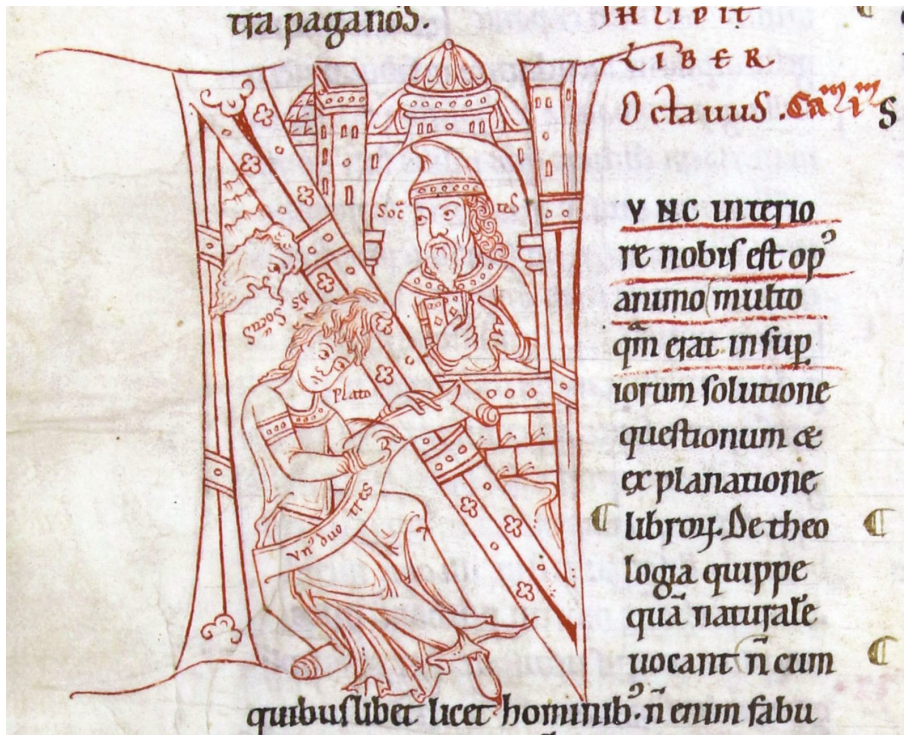 tra paganos.
INCIPIT
LIBER
Octauus. Cam im S
SOC TES
Plato
vn' duo tres
VNC interio
re nobis est op'
animo multo
qm erat in sup
iorum solutione
questionum &
explanatione
libroꝝ. De theo
logia quippe
quā naturalē
uocant n̄ cum
quibuslibet licet hominib'. n̄ enim fabu